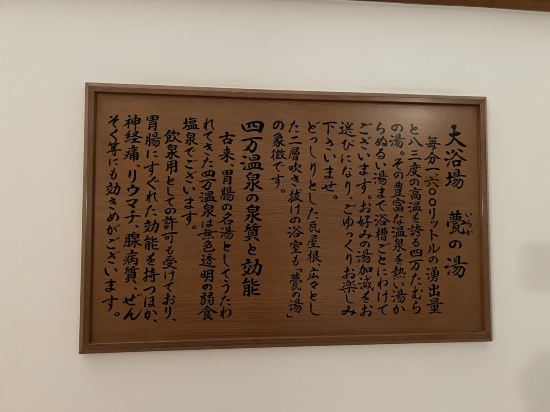 大浴場　甍の湯
いらか
毎分一六〇〇リットルの湧出量
と八三度の高温を誇る四万たむら
の湯。その豊富な温泉を熱い湯か
らぬるい湯まで浴槽ごとにわけて
ございます。お好みの湯加減をお
選びになり、ごゆっくりお楽しみ
下さいませ。
どっしりとした瓦屋根、広々とし
た二層吹き抜けの浴室も「甍の湯」
の象徴です。
四万温泉の泉質と効能
古来、胃腸の名湯としてうたわ
れてきた四万温泉は無色透明の弱食
塩泉でございます。
飲泉用としての許可も受けており、
胃腸にすぐれた効能を持つほか、
神経痛、リウマチ、腺病質、ぜん
そく等にも効きめがございます。